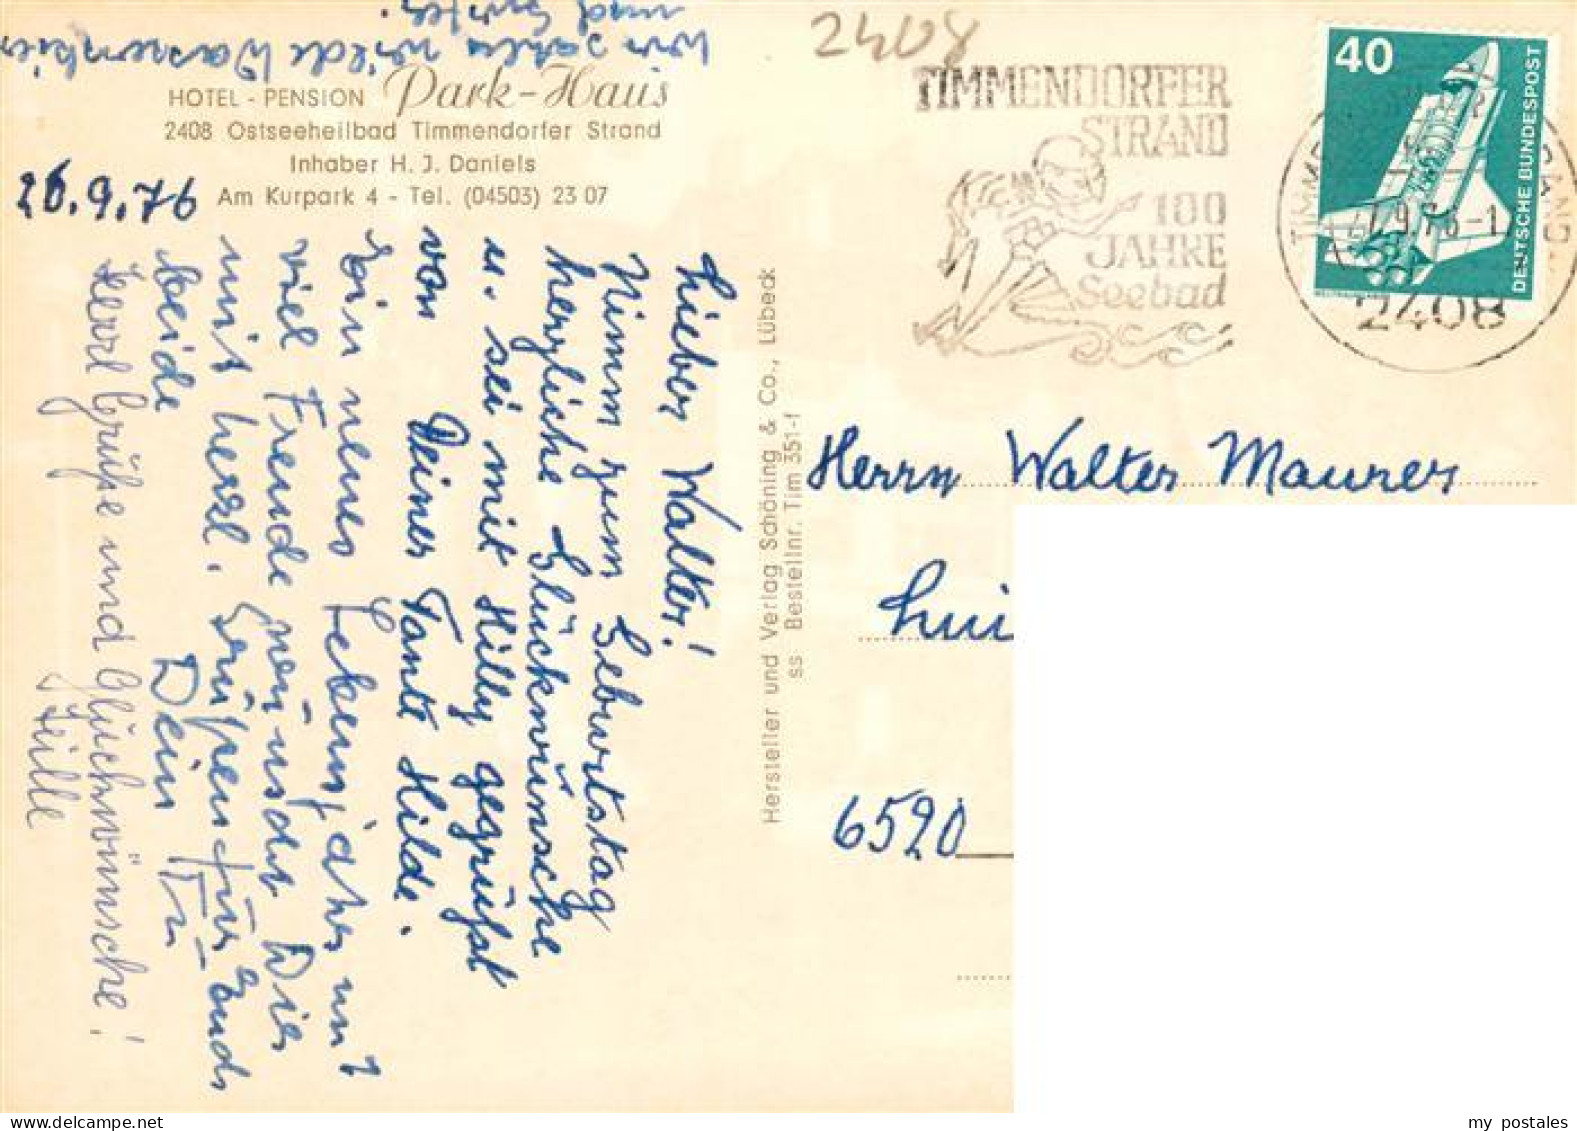 Wir sahen wilde Wassenbier
und
HOTEL - PENSION Park-Haus
2408 Ostseeheilbad Timmendorfer Strand
Inhaber H. J. Daniels
Am Kurpark 4 - Tel. (04503) 23 07
26.9.76
Lieber Walter!
Nimm zum Geburtstag
herzliche Glückwünsche
u. sei mit Hilly gegrüßt
von Deiner Tante Hilde.
Ein neues Lebensjahr mit
viel Freude wünscht Dir
mit herzl. Grüßen für Euch
beide Dein
Herzl Grüße und Glückwünsche!
Hersteller und Verlag Schöning & Co., Lübeck
ss Bestellnr. Tim 351-f
2408
TIMMENDORFER
STRAND
100
JAHRE
Seebad
40
DEUTSCHE BUNDESPOST
2408
Herrn Walter Maurer
6520
my postales